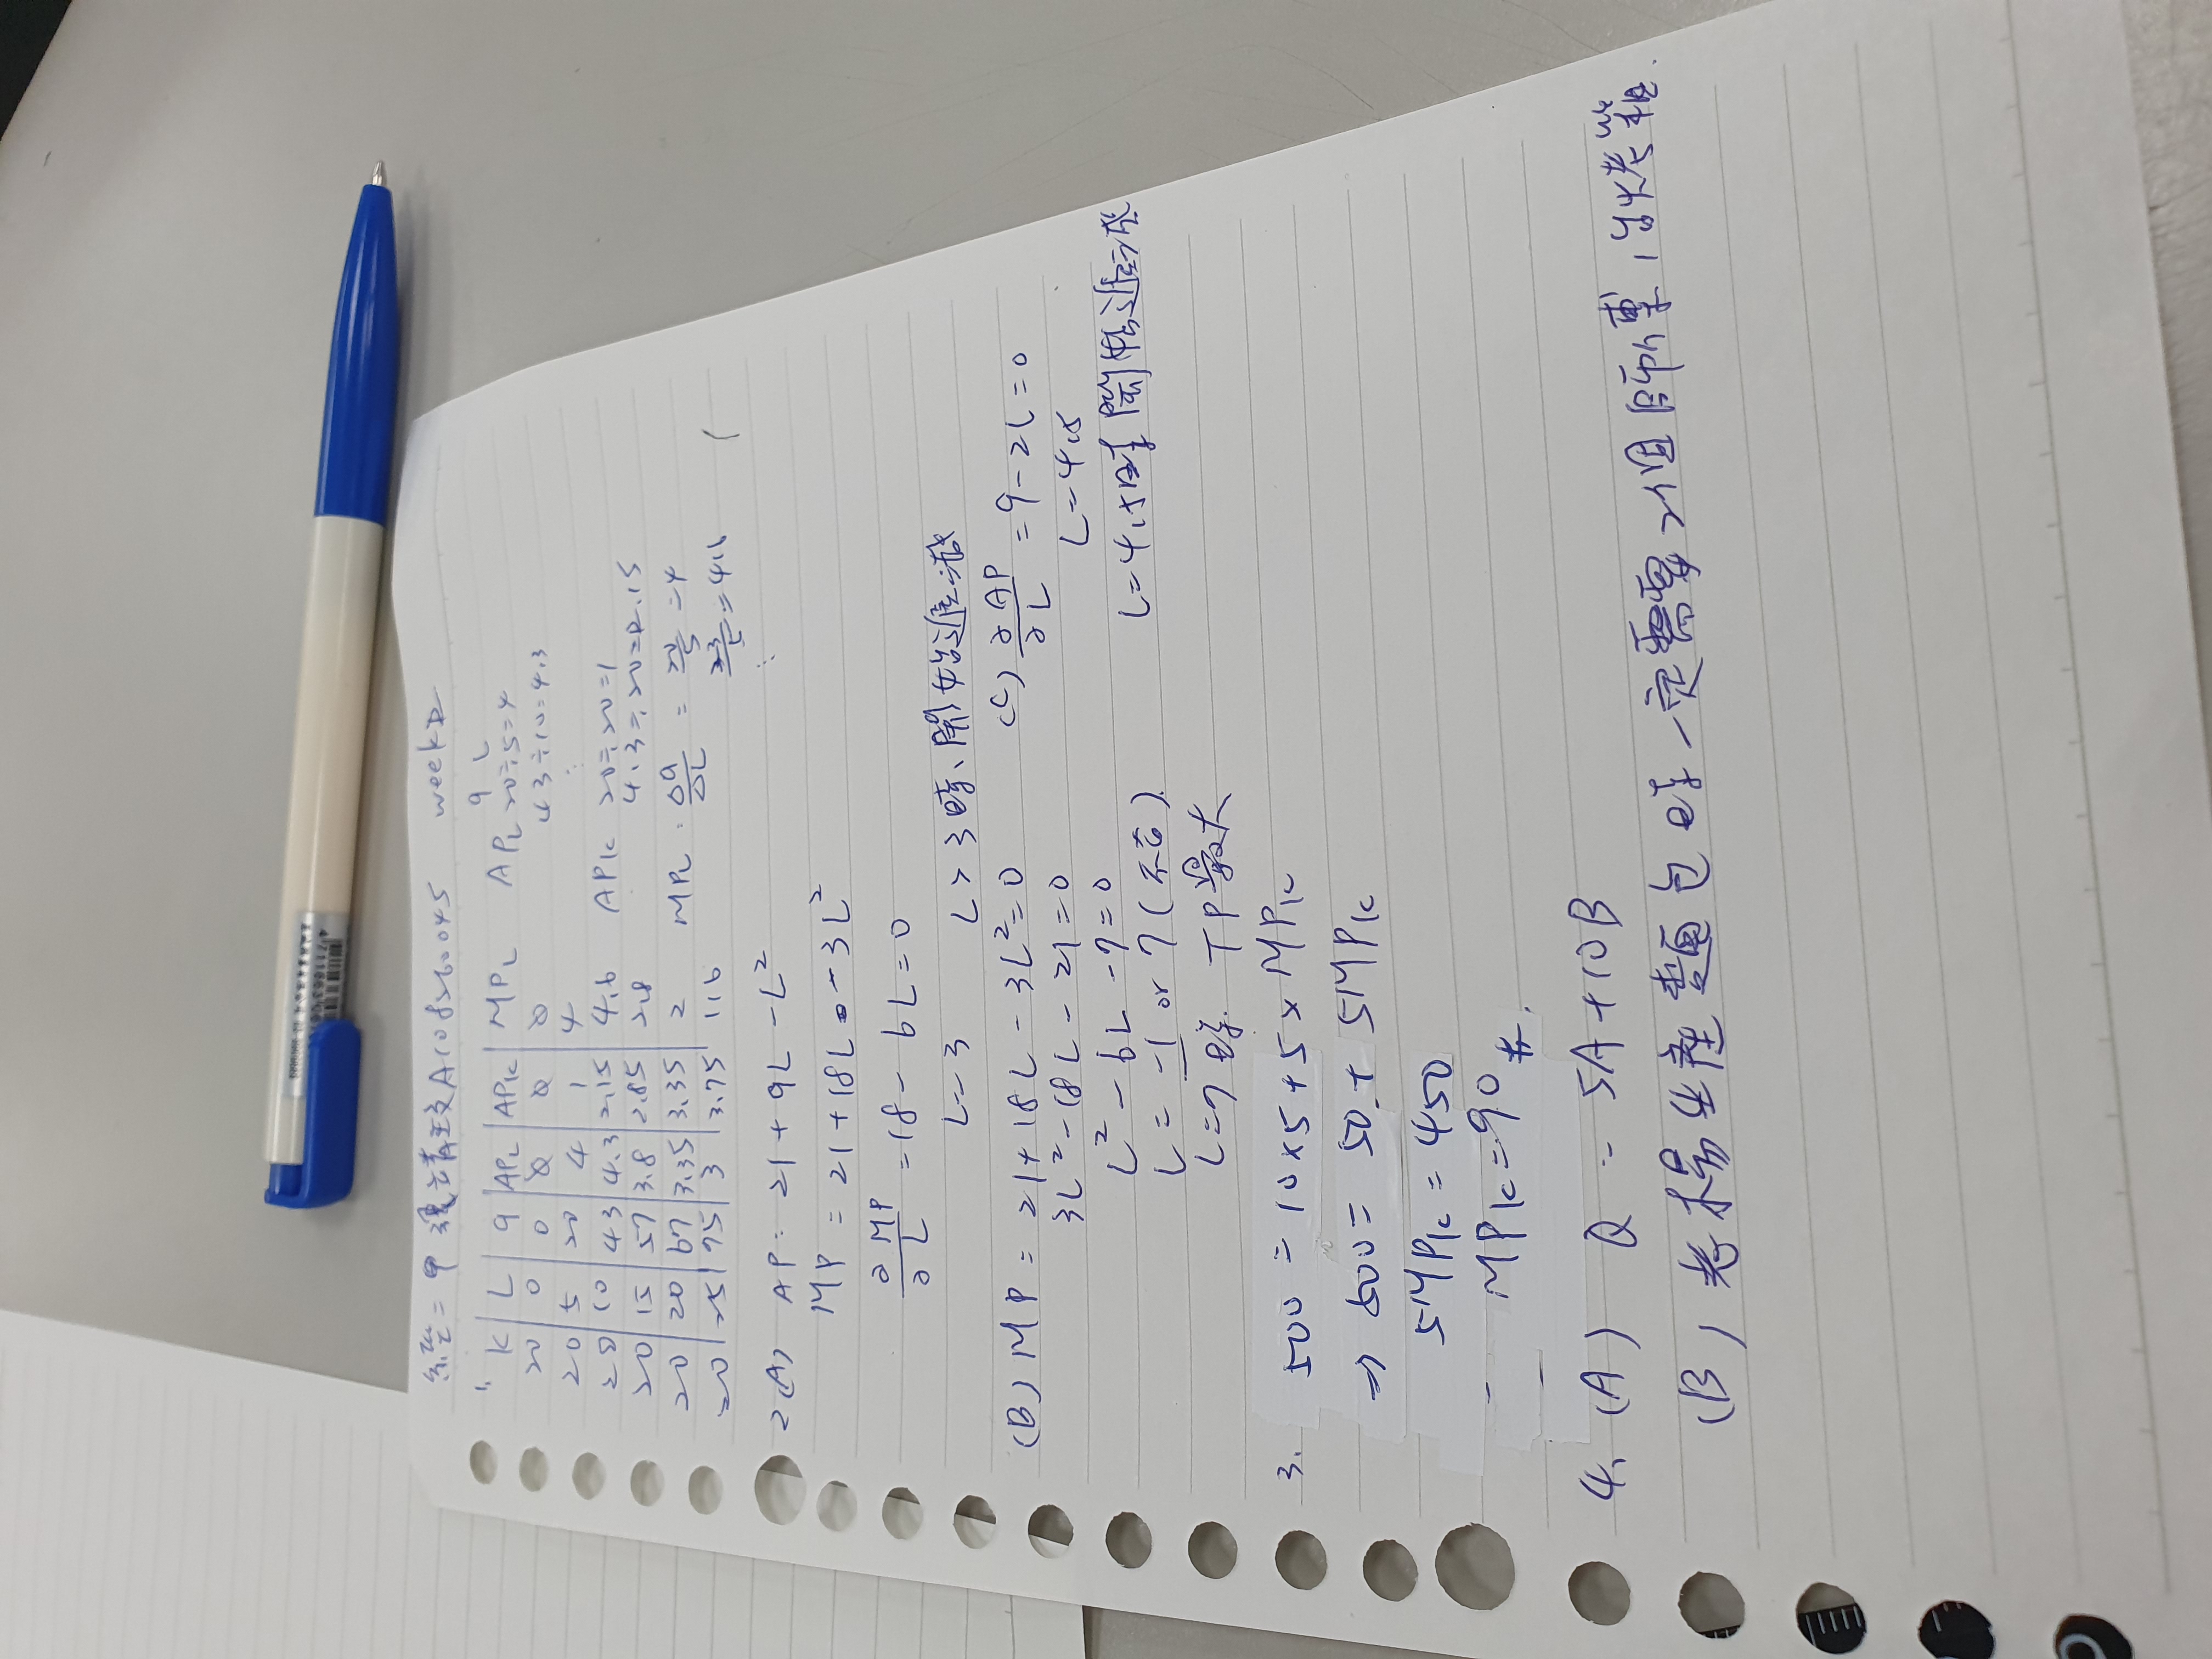 經二甲 A108260045 week12
1. K L q APL APK MPL
20 0 0 0 0 0
20 5 20 4 1 4
20 10 43 4.3 2.15 4.6
20 15 57 3.8 2.85 2.8
20 20 67 3.35 3.35 2
20 25 75 3 3.75 1.6
q L
APL 20÷5=4
43÷10=4.3
⋮
APK 20÷20=1
4.3÷20=2.15
MPL: Δq/ΔL = 20/5 = 4
23/5 = 4.6
⋮
2(A) AP: 21+9L-L²
MP = 21+18L-3L²
∂MP/∂L = 18-6L=0
L=3 L>3時、開始遞減
(B) MP = 21+18L-3L²=0
3L²-18L-21=0
L²-6L-7=0
L = -1 or 7 (不合)
L=7時. TP最大
(C) ∂AP/∂L = 9-2L=0
L=4.5
L=4.5時開始遞減
3. 500 = 10×5+5×MPK
⇒ 500 = 50+5MPK
5MPK = 450
MPK=90#
4. (A) Q = 5A+10B
(B) 老楊生產麵包時一定需要2個師傅,1台烤箱.